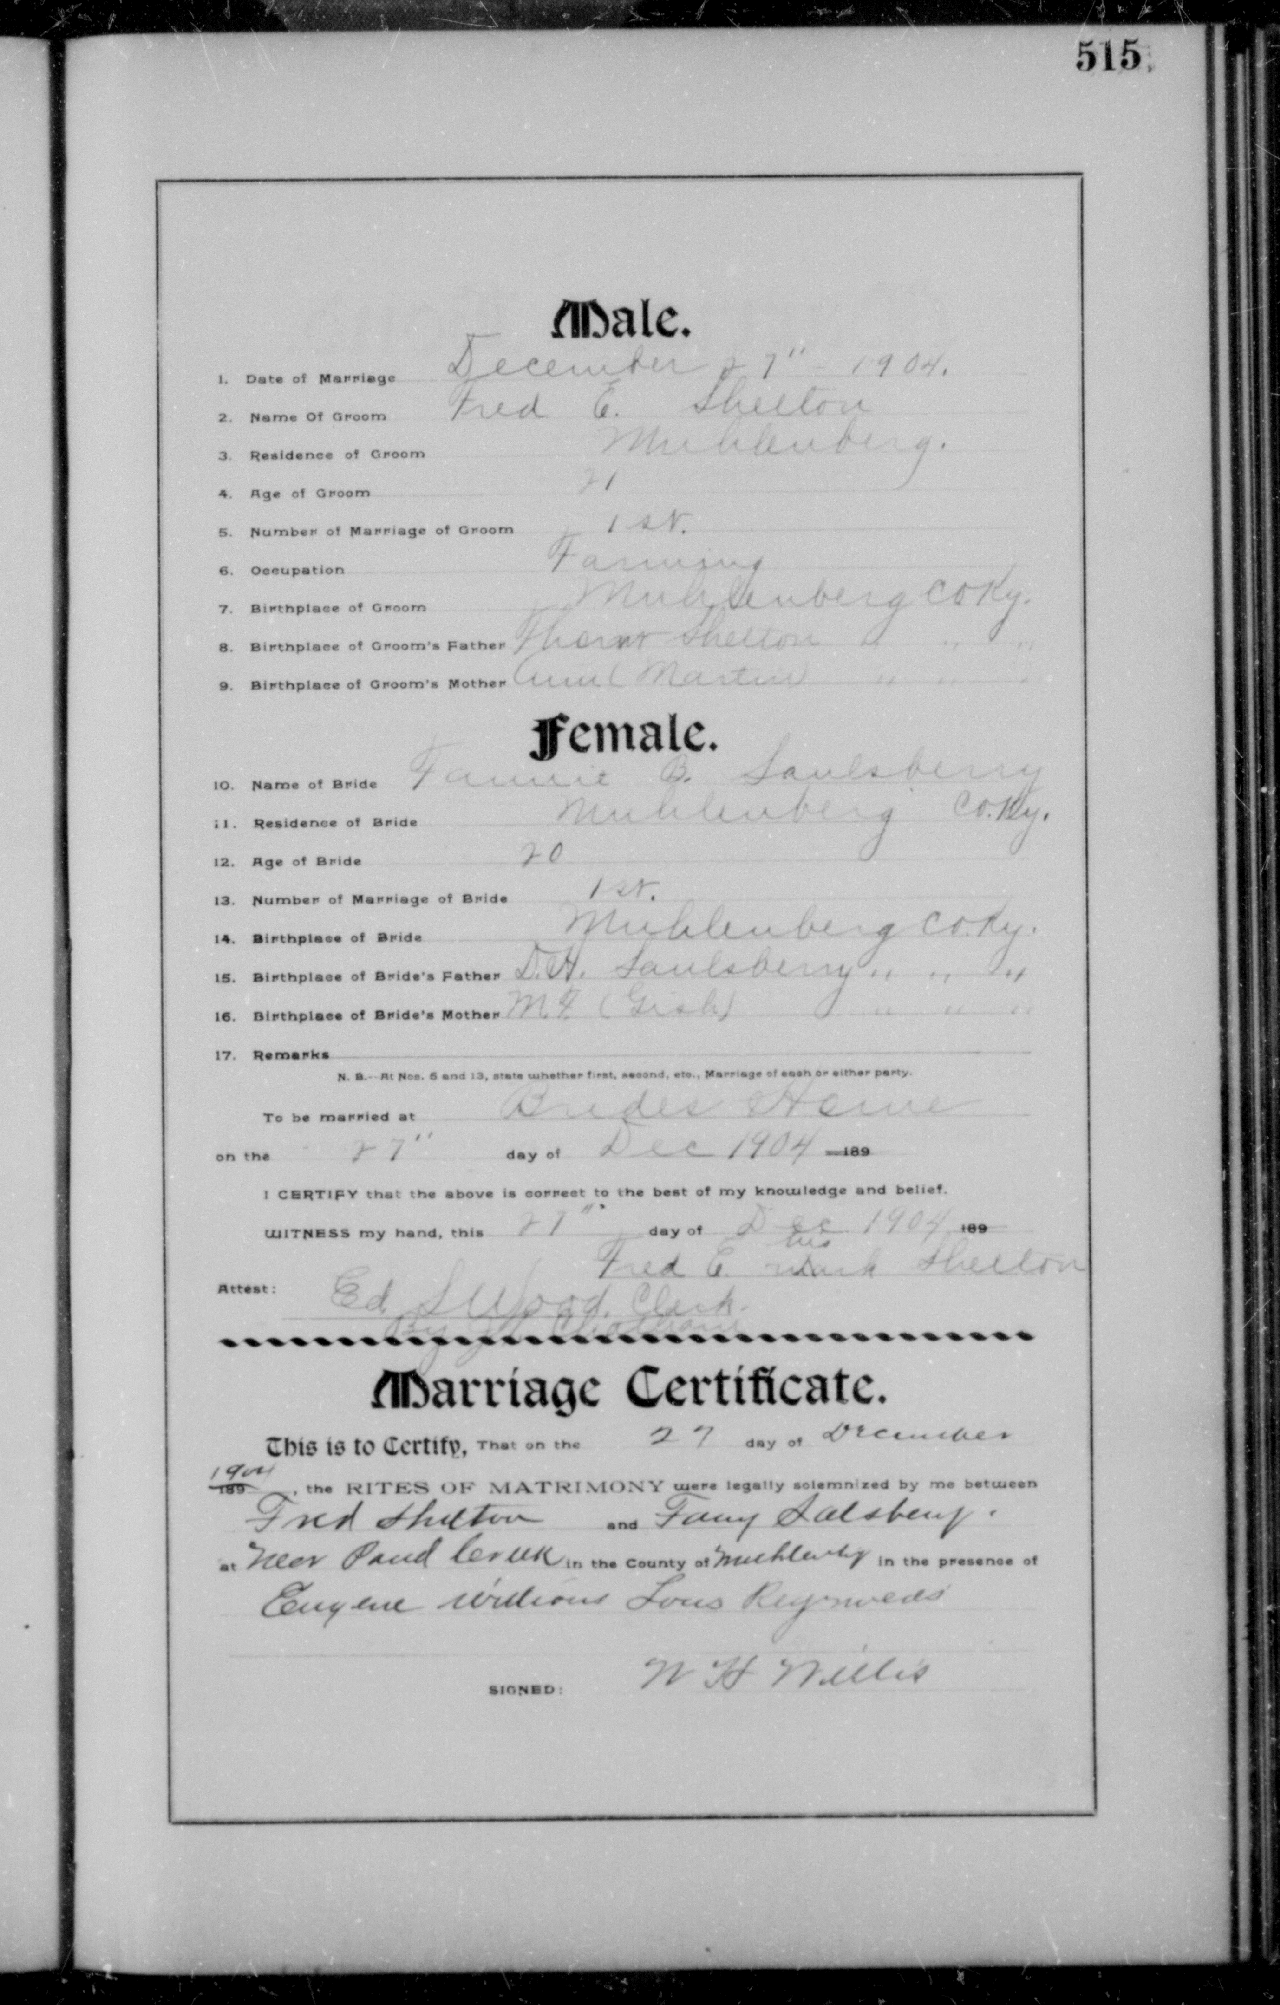 515
Male.
1. Date of Marriage December 27" - 1904.
2. Name Of Groom Fred E. Shelton
3. Residence of Groom Muhlenberg.
4. Age of Groom 21
5. Number of Marriage of Groom 1st.
6. Occupation Farming
7. Birthplace of Groom Muhlenberg Co Ky.
8. Birthplace of Groom's Father Shelton " " "
9. Birthplace of Groom's Mother Ann (Martin) " " "
Female.
10. Name of Bride Fannie B. Saulsberry
11. Residence of Bride Muhlenberg Co. Ky.
12. Age of Bride 20
13. Number of Marriage of Bride 1st.
14. Birthplace of Bride Muhlenberg Co. Ky.
15. Birthplace of Bride's Father D.H. Saulsberry " " "
16. Birthplace of Bride's Mother M.F. (Gish) " " "
17. Remarks
N. B.--At Nos. 5 and 13, state whether first, second, etc., Marriage of each or either party.
To be married at Brides Home
on the 27" day of Dec 1904 189
I CERTIFY that the above is correct to the best of my knowledge and belief.
WITNESS my hand, this 27" day of Dec 1904 189
his
Fred E. mark Shelton
Attest: Ed S Wood. Clerk.
By
Marriage Certificate.
This is to Certify, That on the 27 day of December
1904
189 , the RITES OF MATRIMONY were legally solemnized by me between
Fred Shelton and Fany Salsbery.
at Neer Pond Creek in the County of Muhlenbg in the presence of
Eugene Williams Reynolds
SIGNED: W H Willis